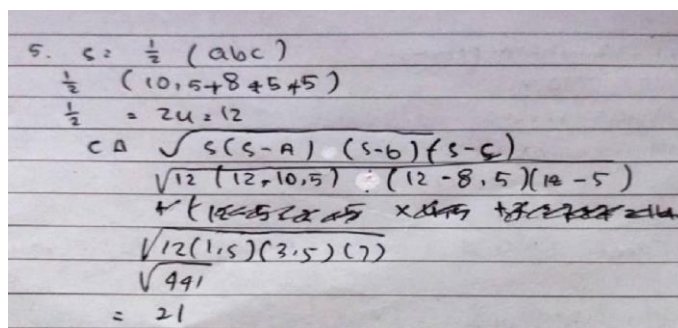 5. s = ½ (abc)
½ (10,5+8,5+5)
½ = 24 = 12
C △ √s(s-A) (s-b)(s-c)
√12 (12-10,5) (12-8,5)(12-5)
√12(1,5)(3,5)(7)
√441
= 21